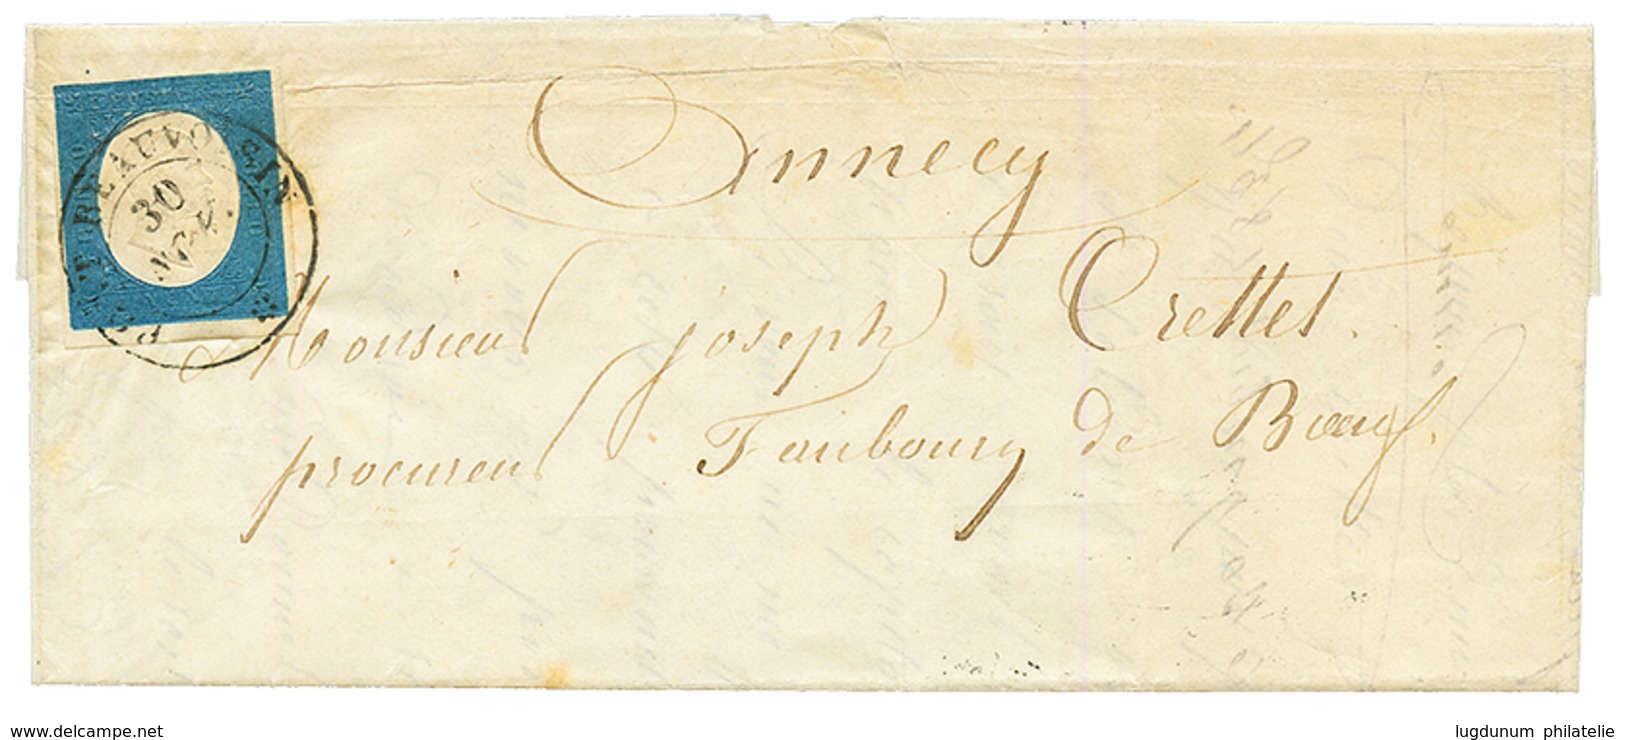 PONT BEAUVOISIN
30
NOV.
Annecy
Monsieur joseph Crettet.
procureur Faubourg de Bœuf.
www.delcampe.net
lugdunum philatelie